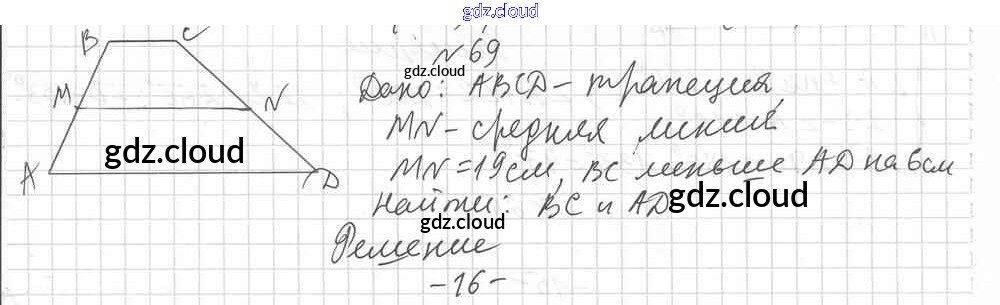 gdz.cloud
B C
N 69
gdz.cloud
M N
Дано: ABCD - трапеция,
MN - средняя линия,
gdz.cloud
A D
MN = 19 см, BC меньше AD на 6 см
Найти: BC и AD
gdz.cloud
gdz.cloud
Решение
-16-